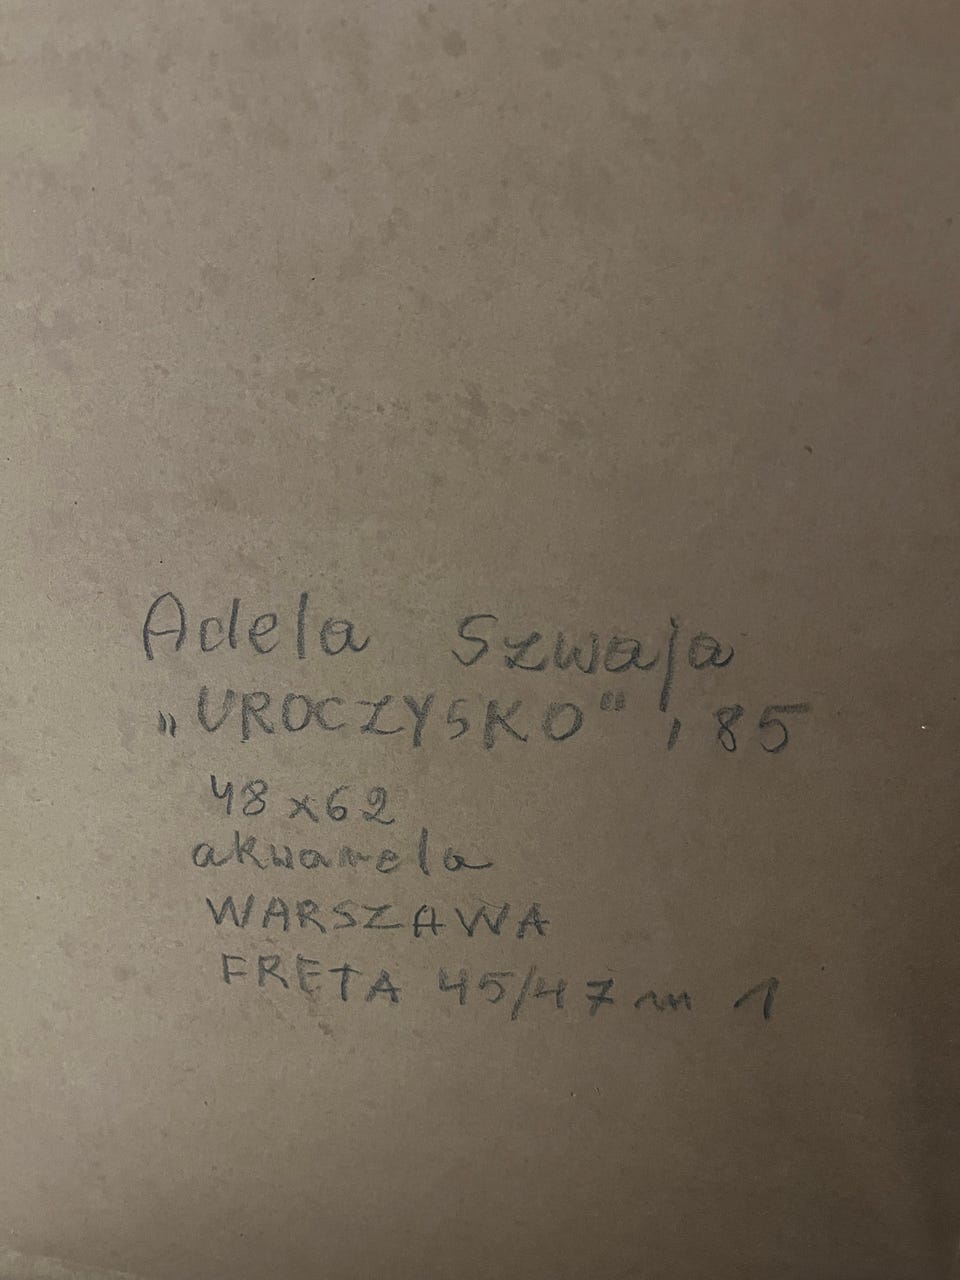 Adela Szwaja
„UROCZYSKO" '85
48x62
akwarela
WARSZAWA
FRETA 45/47 m 1